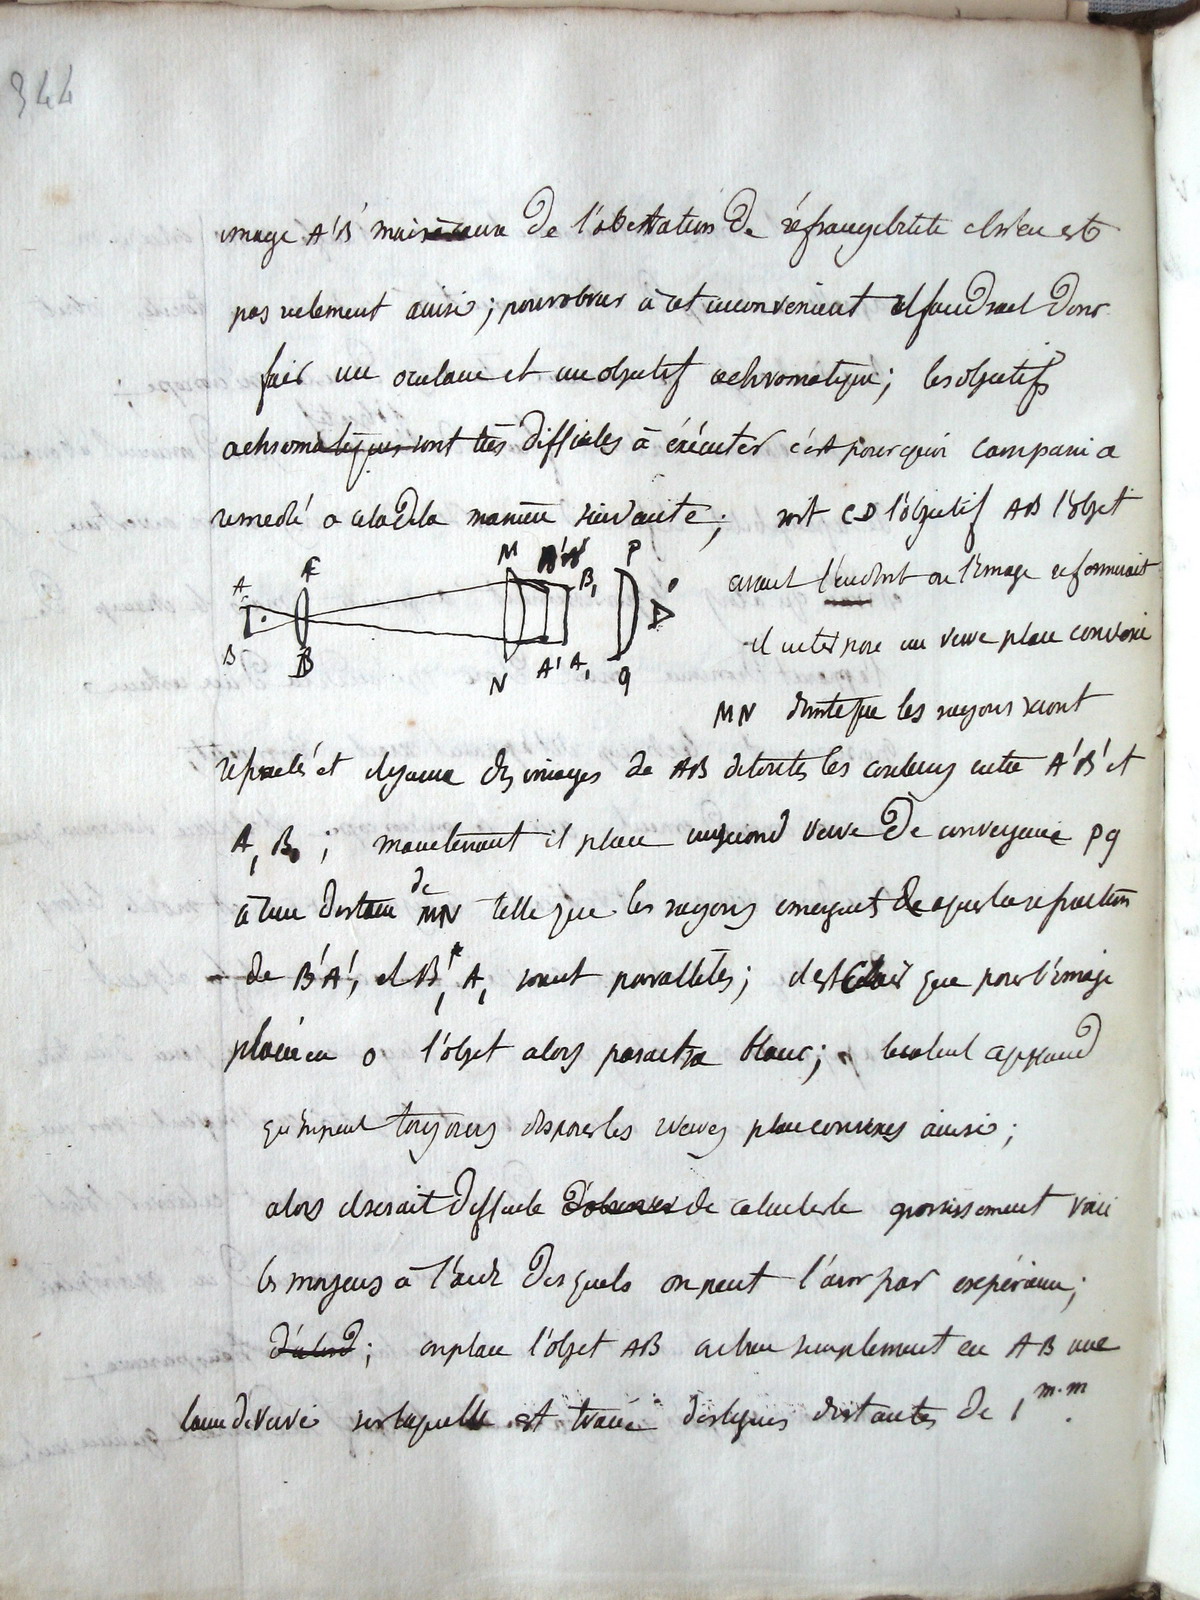 344
image A'B' mais de l'abertation de réfrangibilite il n'en est
pas relement ainsi; pour obvier à cet inconvenient il faudrait donc
fair un oculaire et un objectif achromatique; les objectifs
achromatiques sont très difficiles à éxécuter c'est pourquoi Campani a
remedié a cela de la maniere suivante; soit CD l'objectif AB l'objet
avant l'endroit ou l'image se formerait
il interpose un verre plan convexe
MN de sorte que les rayons seront
A
B
M
N
A'
A,
B,
P
q
o
refractés et il y aura des images de AB de toutes les couleurs entre A'B' et
A, B, ; maintenant il place un second verre de convergence pq
à une distance de MN telle que les rayons emergents apres la refraction
de B'A', et B', A, soient parallèles; il est clair que pour l'image
placée en o l'objet alors paraitra blanc; le calcul apprend
qu'on peut toujours disposer les verres plan convexes ainsi;
alors il serait difficile d'observer de calculer le grossissement voici
les moyens à l'aide desquels on peut l'avoir par expérience;
d'abord; on place l'objet AB ou bien simplement en AB une
lame de verre sur laquelle est tracé des lignes distantes de 1 m.m.